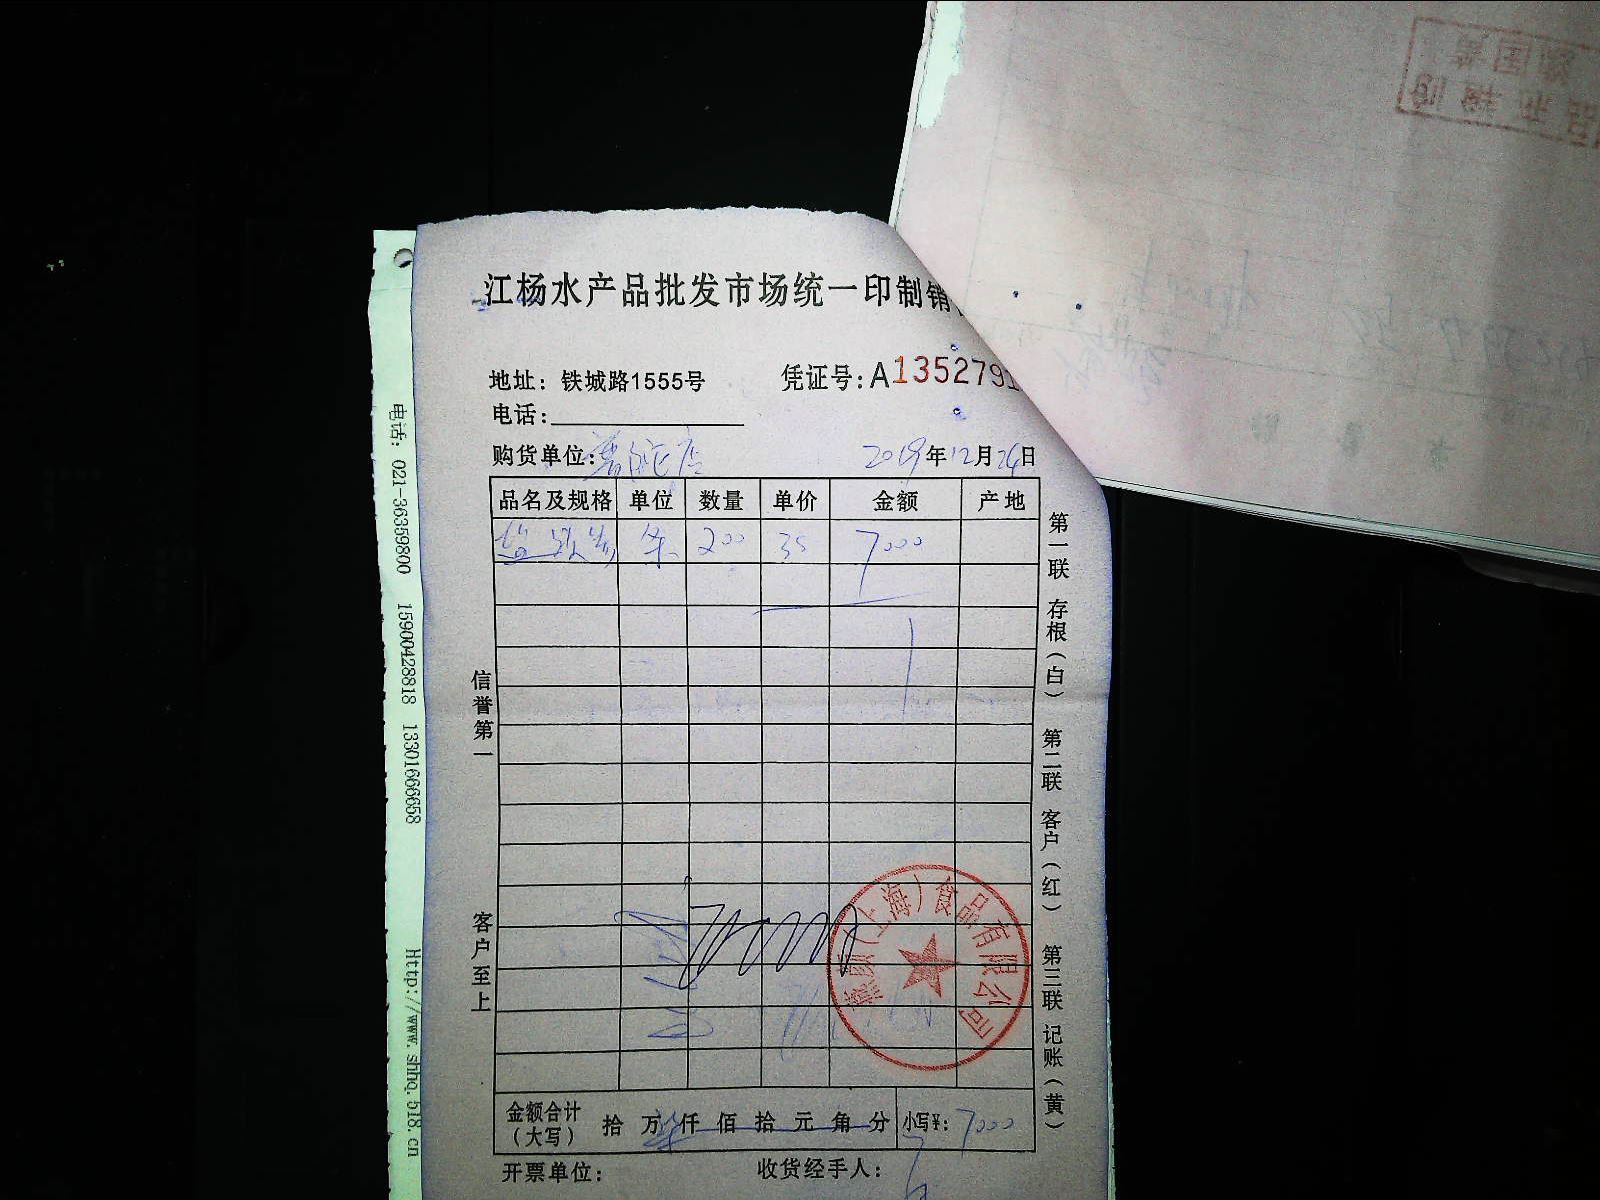 江杨水产品批发市场统一印制销
地址：铁城路1555号 凭证号：A1352791
电话：
购货单位： 2019年12月24日
品名及规格 单位 数量 单价 金额 产地
条 200 35 7000
信誉第一
客户至上
第一联 存根（白） 第二联 客户（红） 第三联 记账（黄）
（上海）食品有限公司
金额合计（大写） 拾 万 柒 仟 佰 拾 元 角 分 小写¥： 7000
开票单位： 收货经手人：
电话： 021-36359800 15900428818 13301666658 Http://www.shhq.518.cn